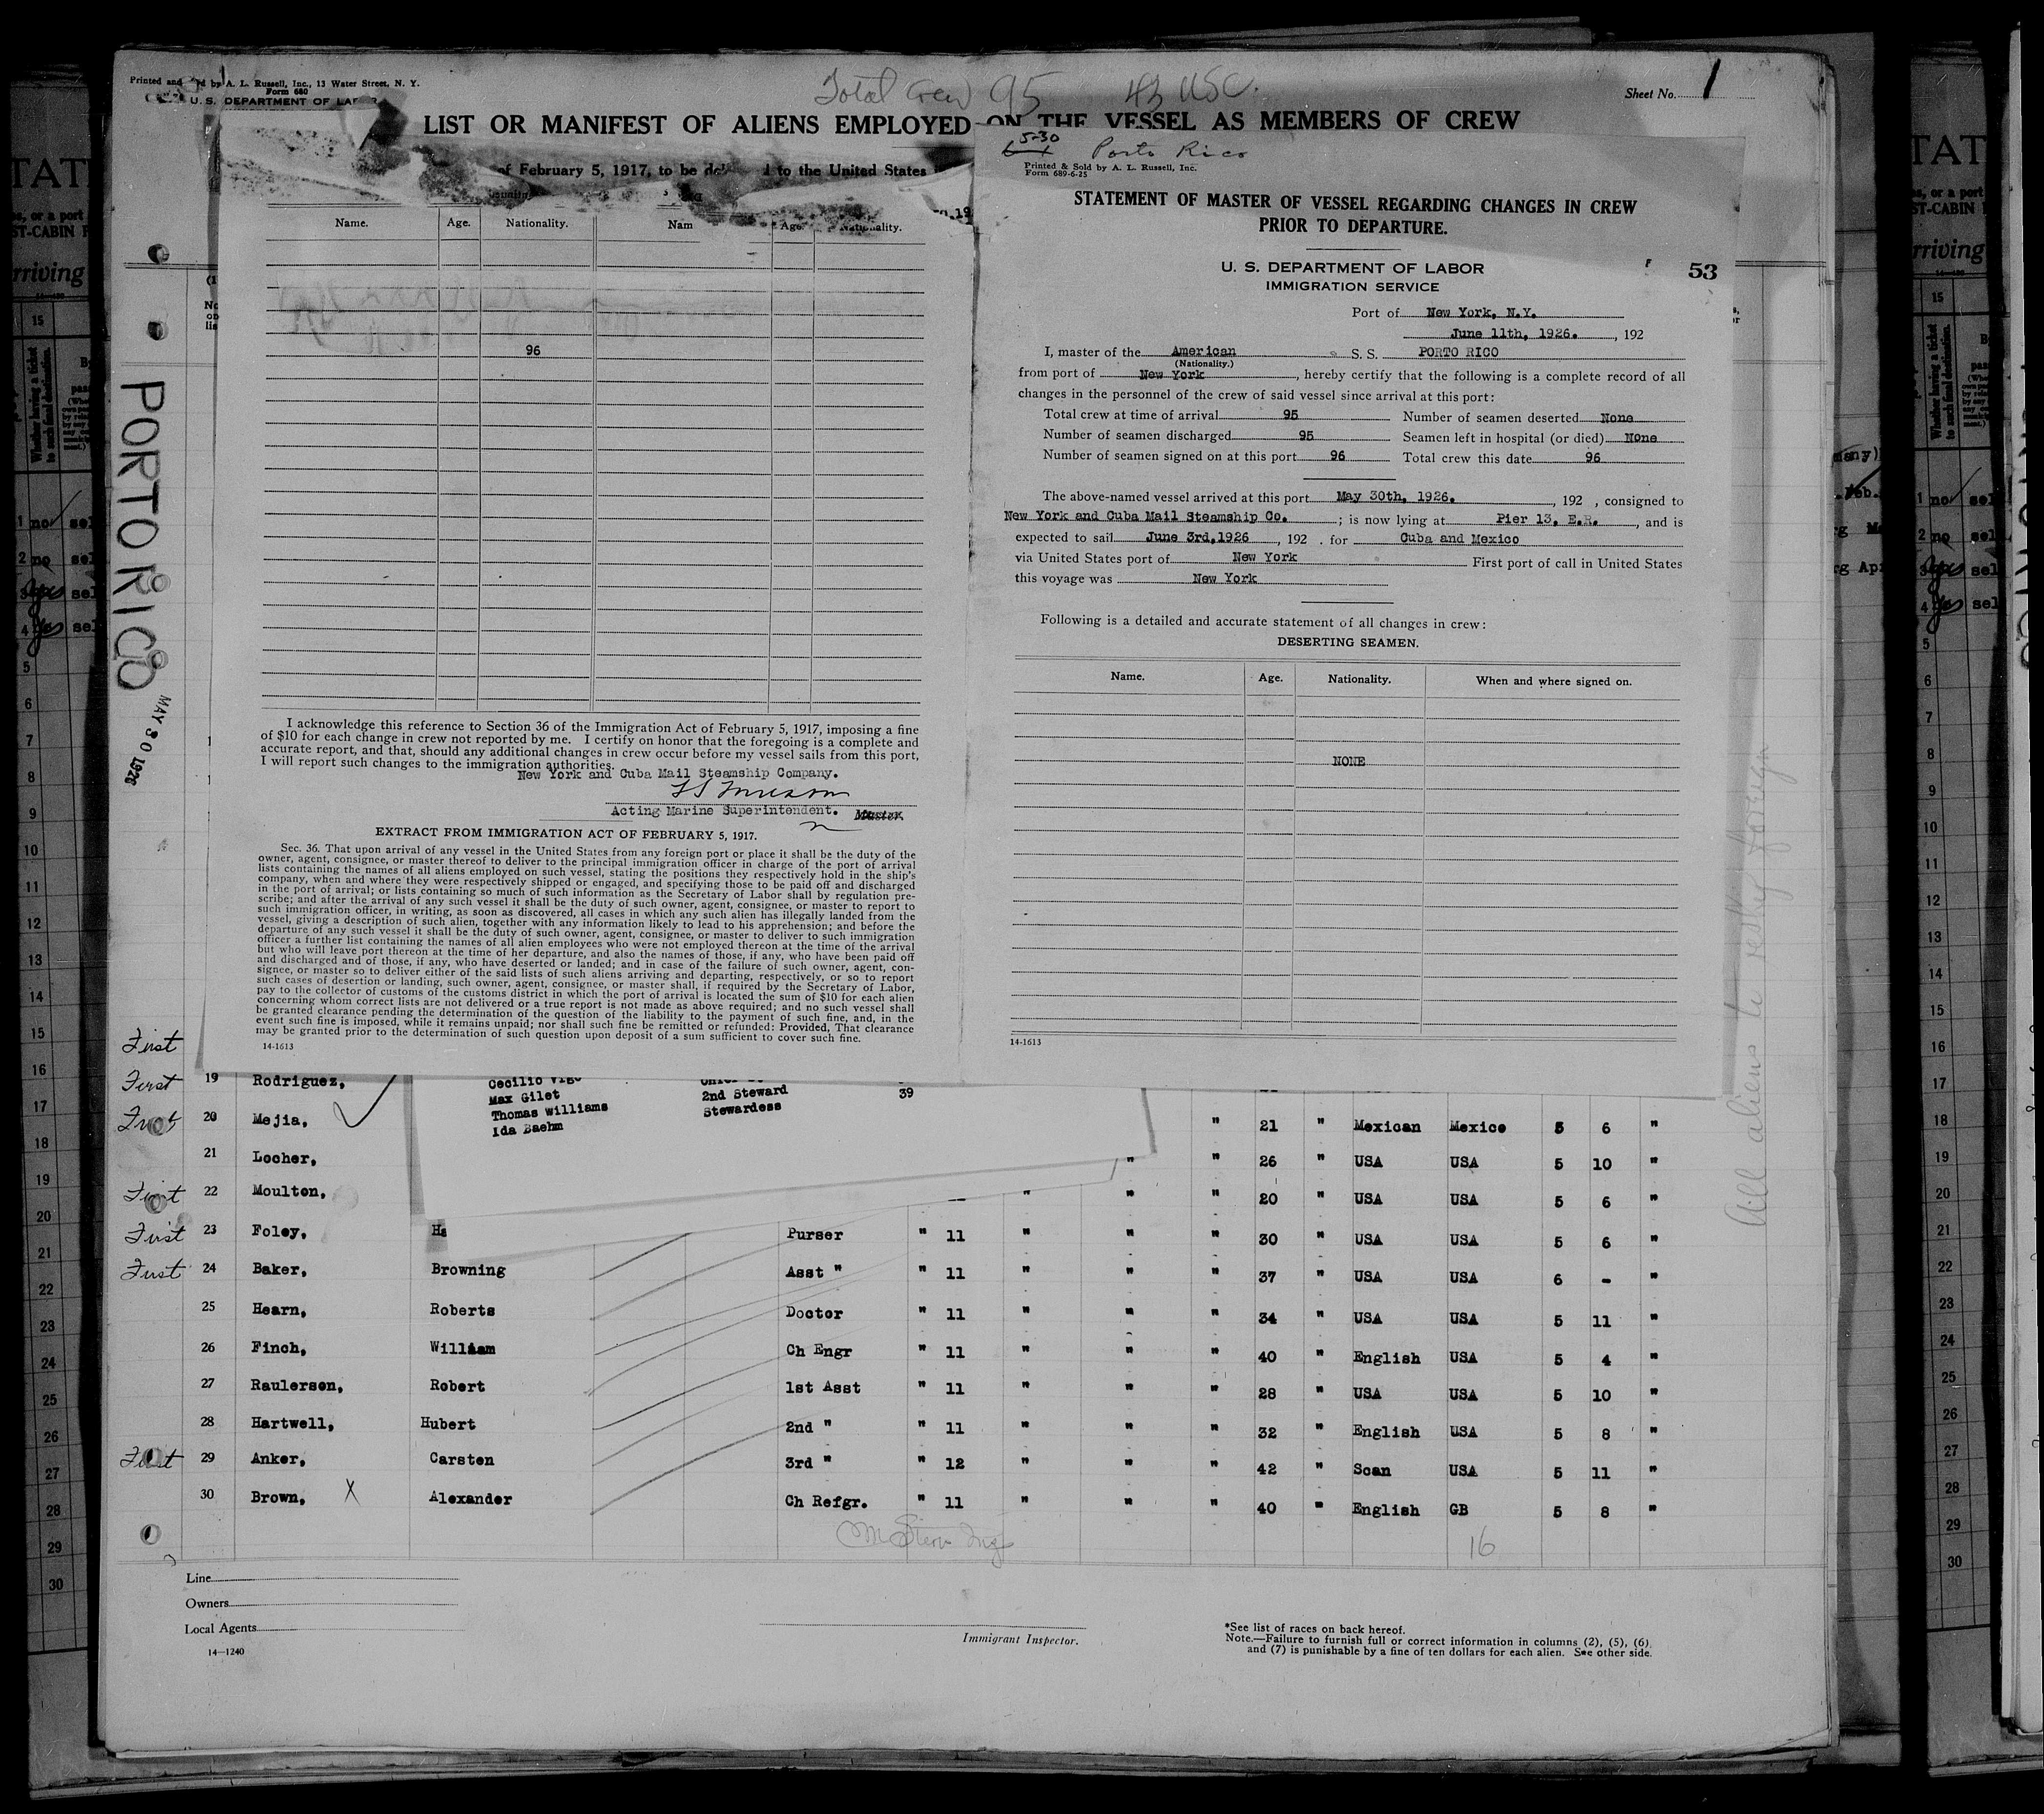 Printed and
d by A. L. Russell, Inc., 13 Water Street, N. Y.
Form 680
U. S. DEPARTMENT OF LA
Total Crew 95
Sheet No. 1
LIST OR MANIFEST OF ALIENS EMPLOYED ON THE VESSEL AS MEMBERS OF CREW
of February 5, 1917, to be de
d to the United States
Name. Age. Nationality. Nam Age Nationality.
96
I acknowledge this reference to Section 36 of the Immigration Act of February 5, 1917, imposing a fine
of $10 for each change in crew not reported by me. I certify on honor that the foregoing is a complete and
accurate report, and that, should any additional changes in crew occur before my vessel sails from this port,
I will report such changes to the immigration authorities.
New York and Cuba Mail Steamship Company.
Acting Marine Superintendent. Master.
EXTRACT FROM IMMIGRATION ACT OF FEBRUARY 5, 1917.
Sec. 36. That upon arrival of any vessel in the United States from any foreign port or place it shall be the duty of the
owner, agent, consignee, or master thereof to deliver to the principal immigration officer in charge of the port of arrival
lists containing the names of all aliens employed on such vessel, stating the positions they respectively hold in the ship's
company, when and where they were respectively shipped or engaged, and specifying those to be paid off and discharged
in the port of arrival; or lists containing so much of such information as the Secretary of Labor shall by regulation pre-
scribe; and after the arrival of any such vessel it shall be the duty of such owner, agent, consignee, or master to report to
such immigration officer, in writing, as soon as discovered, all cases in which any such alien has illegally landed from the
vessel, giving a description of such alien, together with any information likely to lead to his apprehension; and before the
departure of any such vessel it shall be the duty of such owner, agent, consignee, or master to deliver to such immigration
officer a further list containing the names of all alien employees who were not employed thereon at the time of the arrival
but who will leave port thereon at the time of her departure, and also the names of those, if any, who have been paid off
and discharged and of those, if any, who have deserted or landed; and in case of the failure of such owner, agent, con-
signee, or master so to deliver either of the said lists of such aliens arriving and departing, respectively, or so to report
such cases of desertion or landing, such owner, agent, consignee, or master shall, if required by the Secretary of Labor,
pay to the collector of customs of the customs district in which the port of arrival is located the sum of $10 for each alien
concerning whom correct lists are not delivered or a true report is not made as above required; and no such vessel shall
be granted clearance pending the determination of the question of the liability to the payment of such fine, and, in the
event such fine is imposed, while it remains unpaid; nor shall such fine be remitted or refunded: Provided, That clearance
may be granted prior to the determination of such question upon deposit of a sum sufficient to cover such fine.
14-1613
5-30
Porto Rico
Printed & Sold by A. L. Russell, Inc.
Form 689-6-25
STATEMENT OF MASTER OF VESSEL REGARDING CHANGES IN CREW
PRIOR TO DEPARTURE.
U. S. DEPARTMENT OF LABOR
IMMIGRATION SERVICE
53
Port of New York, N.Y.
June 11th, 1926. , 192
I, master of the American S. S. PORTO RICO
(Nationality.)
from port of New York , hereby certify that the following is a complete record of all
changes in the personnel of the crew of said vessel since arrival at this port:
Total crew at time of arrival 95 Number of seamen deserted None
Number of seamen discharged 95 Seamen left in hospital (or died) None
Number of seamen signed on at this port 96 Total crew this date 96
The above-named vessel arrived at this port May 30th, 1926. , 192 , consigned to
New York and Cuba Mail Steamship Co. ; is now lying at Pier 13, E.R. , and is
expected to sail June 3rd,1926 , 192 . for Cuba and Mexico
via United States port of New York First port of call in United States
this voyage was New York
Following is a detailed and accurate statement of all changes in crew:
DESERTING SEAMEN.
Name. Age. Nationality. When and where signed on.
NONE
14-1613
PORTO RICO
MAY 30 1926
All aliens to reship foreign
First
First 19 Rodriguez,
Cecilio Vigo
Max Gilet 2nd Steward 39
Thomas Williams Stewardess
Ida Baehm
First 20 Mejia, " 21 " Mexican Mexico 5 6 "
21 Locher, " " 26 " USA USA 5 10 "
First 22 Moulton, " " " 20 " USA USA 5 6 "
First 23 Foley, Ha Purser " 11 " " " 30 " USA USA 5 6 "
First 24 Baker, Browning Asst " " 11 " " " 37 " USA USA 6 - "
25 Hearn, Roberts Doctor " 11 " " " 34 " USA USA 5 11 "
26 Finch, William Ch Engr " 11 " " " 40 " English USA 5 4 "
27 Raulerson, Robert 1st Asst " 11 " " " 28 " USA USA 5 10 "
28 Hartwell, Hubert 2nd " " 11 " " " 32 " English USA 5 8 "
First 29 Anker, Carsten 3rd " " 12 " " " 42 " Scan USA 5 11 "
30 Brown, X Alexander Ch Refgr. " 11 " " " 40 " English GB 5 8 "
16
Line
Owners
Local Agents
14-1240
Immigrant Inspector.
*See list of races on back hereof.
Note.—Failure to furnish full or correct information in columns (2), (5), (6),
and (7) is punishable by a fine of ten dollars for each alien. See other side.